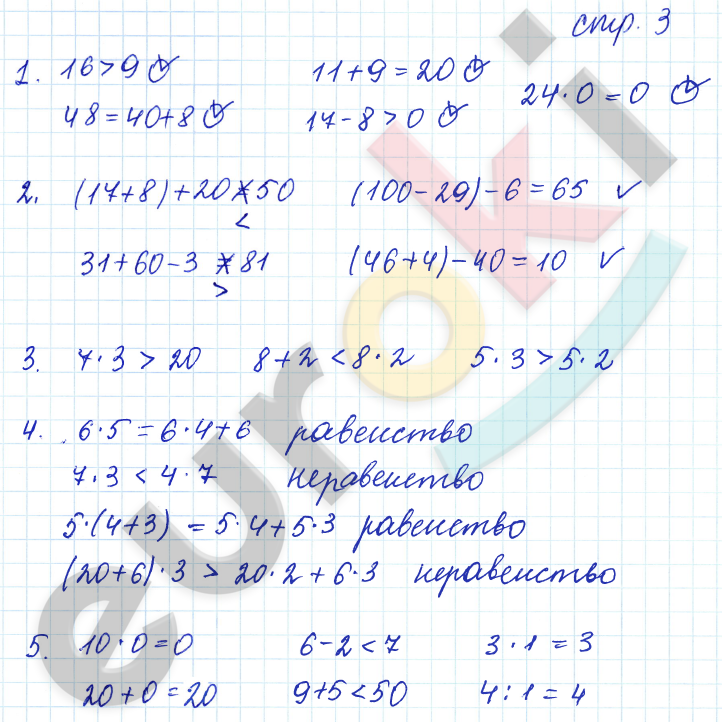 стр. 3
1. 16>9 11+9=20 24·0=0
48=40+8 17-8>0
2. (17+8)+20 50 (100-29)-6=65 ✓
<
31+60-3 81 (46+4)-40=10 ✓
>
3. 7·3>20 8+2<8·2 5·3>5·2
4. 6·5=6·4+6 равенство
7·3<4·7 неравенство
5·(4+3)=5·4+5·3 равенство
(20+6)·3>20·2+6·3 неравенство
5. 10·0=0 6-2<7 3·1=3
20+0=20 9+5<50 4:1=4
euroki